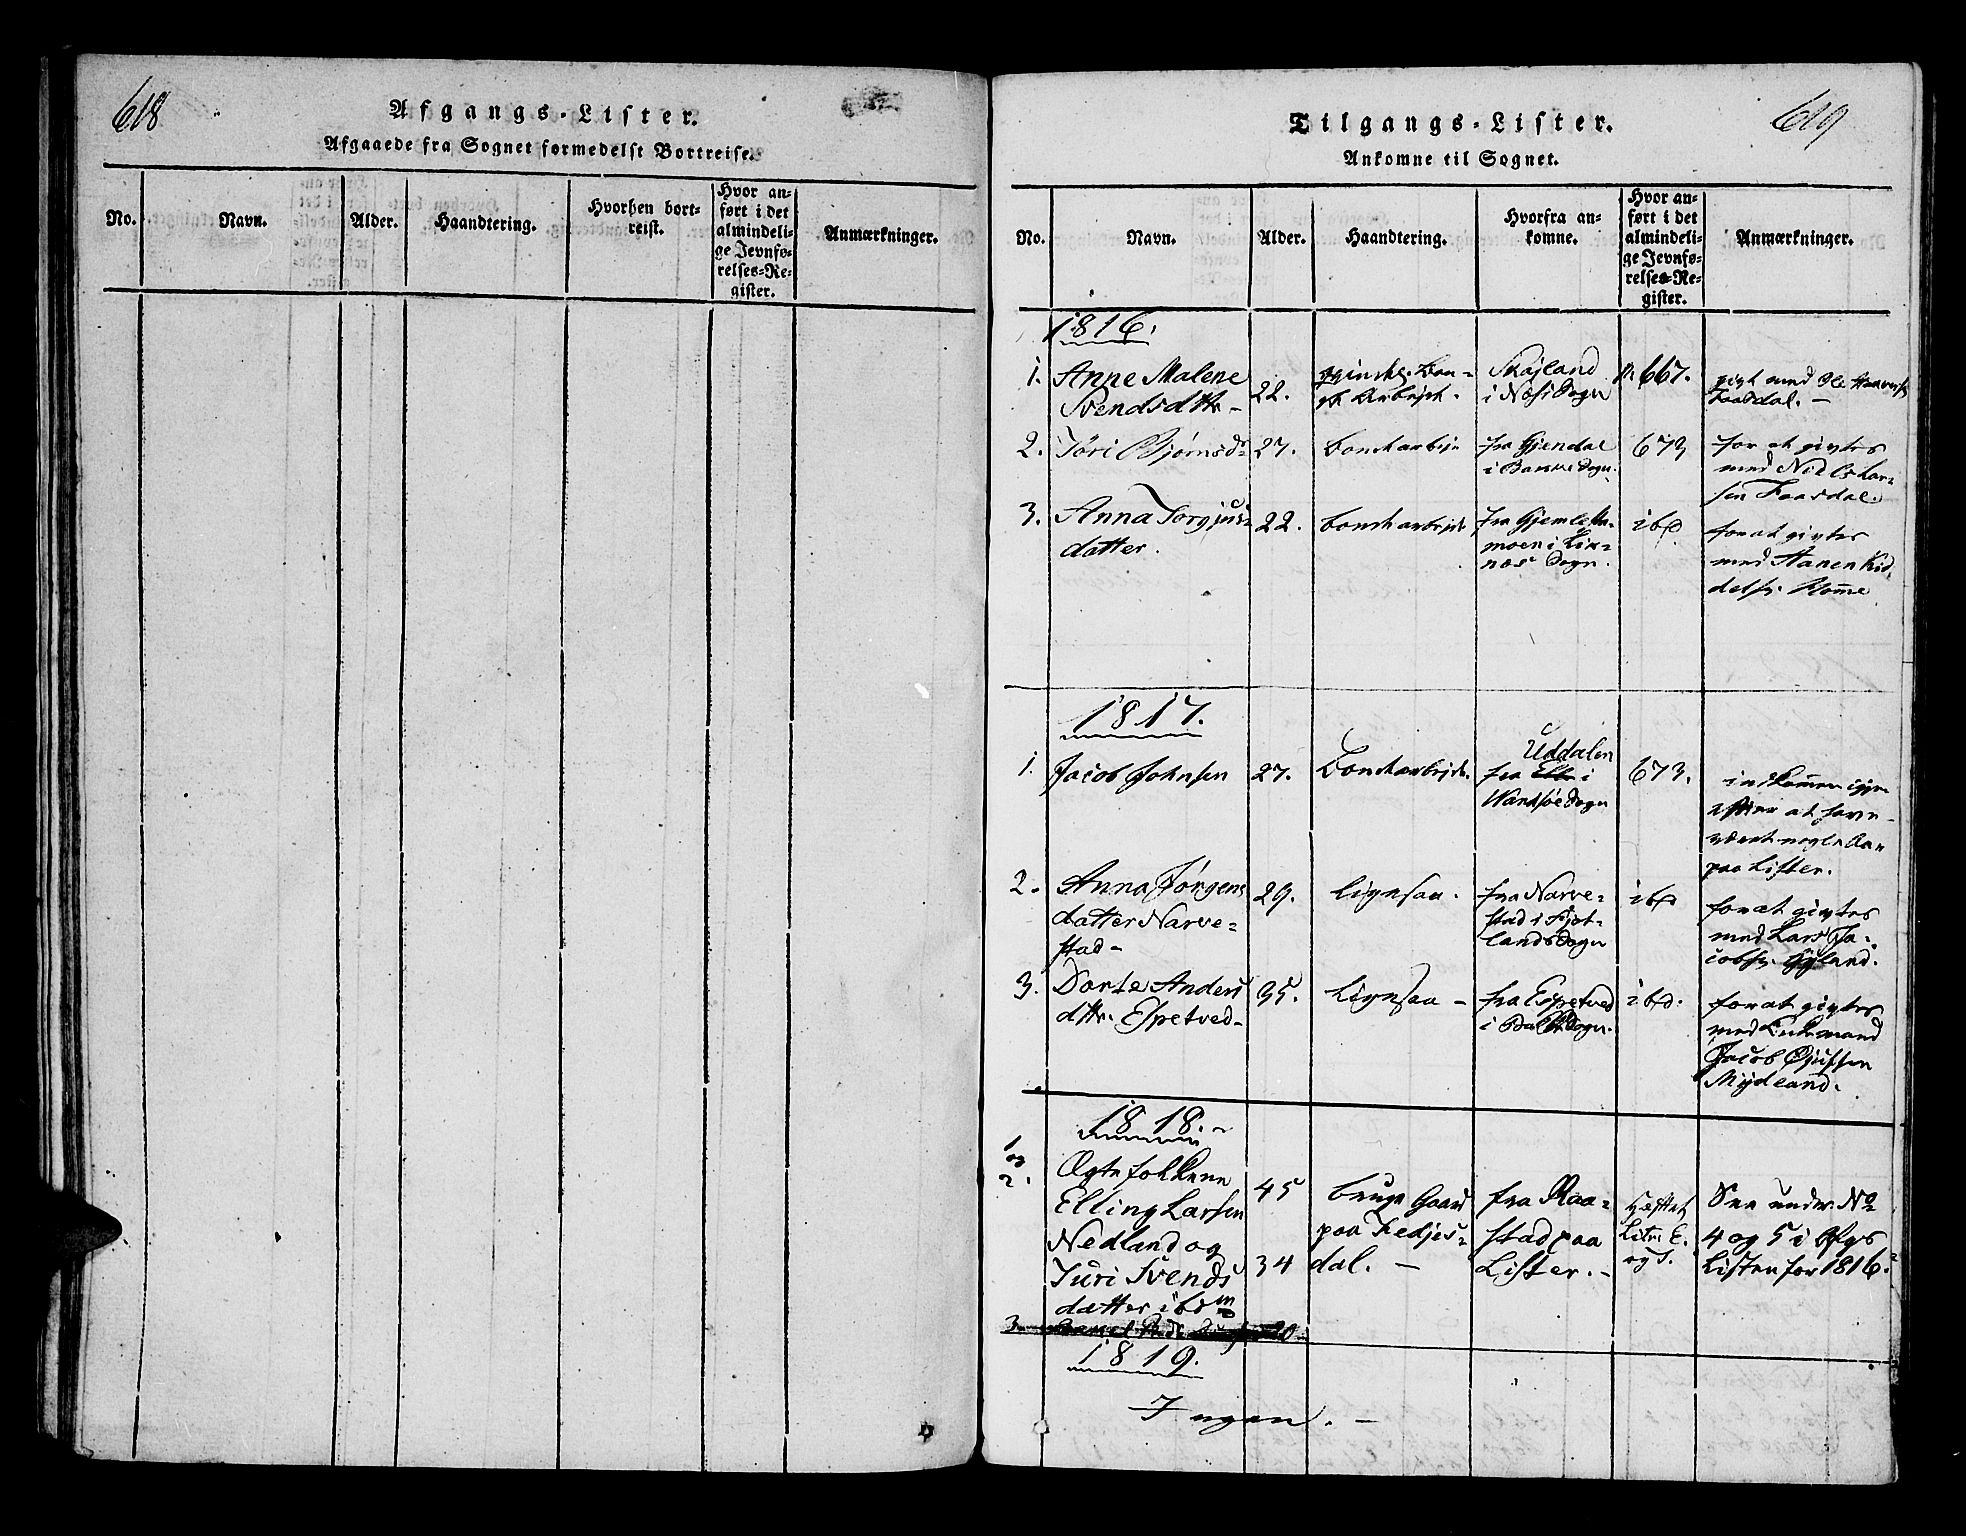 618
Afgangs-Lister.
Afgaaede fra Sognet formedelst Bortreise.
No.
Navn.
Alder.
Haandtering.
Hvorhen bort-
reist.
Hvor an-
ført i det
almindeli-
ge Jevnfø-
relses-Re-
gister.
Anmærkninger.
619
Tilgangs-Lister.
Ankomne til Sognet.
No.
Navn.
Alder.
Haandtering.
Hvorfra an-
komne.
Hvor an-
ført i det
almindeli-
ge Jevnfø-
relses-Re-
gister.
Anmærkninger.
1816.
1.
Anne Malene
Svendsdttr-
22.
Skajland
i Sogn
667.
givt med Ole
Faasdal.-
2.
Jöri Bjørnsd
27.
bondearbejde
fra Gjendal
i Sogn.
673
for at givtes
med Niels Lar=
sen Faasdal.
3.
Anna Torgjus=
datter.
22.
bondearbejde
fra
moen i
Sogn.
ibd
for at givtes
med Aanen Kid
delss. Home
1817.
1.
Jacob Johnsen
27.
Bondearbejde.
Uddalen
fra i
Wandsøe Sogn
673.
indkommen igjen
efter at have
været nogle Aar
paa Lister.
2.
Anna Jörgens
datter Narve=
stad-
29.
ligesaa.
fra Narve=
stad i Fjot-
lands Sogn
ibd
for at givtes
med Lars Ja=
cobss. Gyland.
3.
Dorte Anders
dttr. Espetved-
35.
Ligesaa-
fra Espetved
i Sogn.
ibd.
for at givtes
med Enkemand
Jacob Gjussen
Mydland.
1818.-
1
og
2.
Ægtefolkene
Elling Larsen
Nedland og
Juri Svends
datter ibdm
45
34
bruge Gaard
paa Fedjes=
dal.-
fra Raa=
stad paa
Lister.-
Hæftet
Litr. E.
og S.
See under No
4 og 5 i Afgs
Listen for 1816.
3
20
1819.
Ingen.-